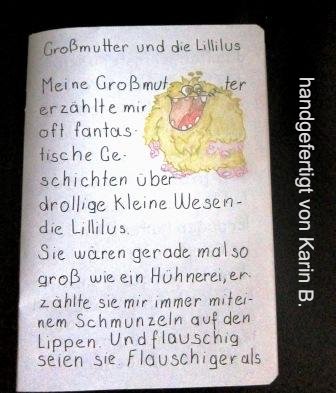 Großmutter und die Lillilus
Meine Großmutter
erzählte mir
oft fantas-
tische Ge-
schichten über
drollige kleine Wesen-
die Lillilus.
Sie wären gerade mal so
groß wie ein Hühnerei, er-
zählte sie mir immer mitei-
nem Schmunzeln auf den
Lippen. Und flauschig
seien sie. Flauschiger als
handgefertigt von Karin B.